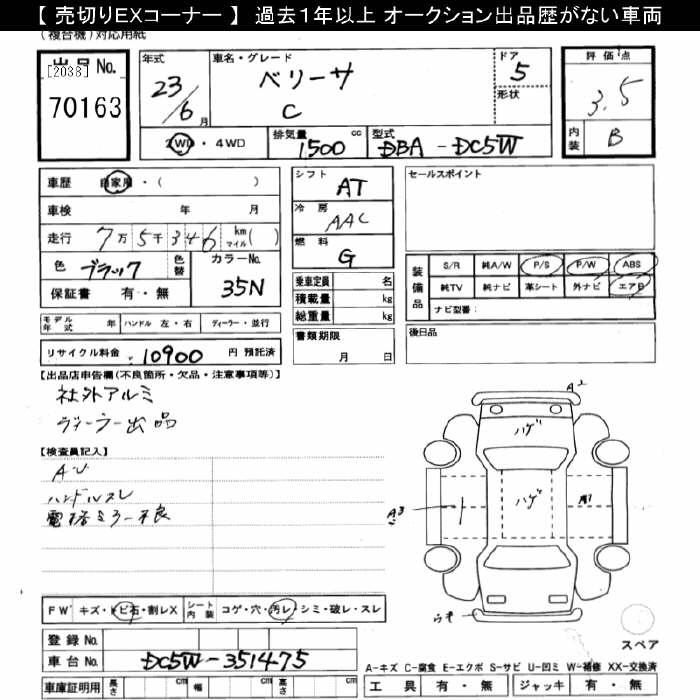 【 売切りEXコーナー 】 過去1年以上 オークション出品歴がない車両
(複合機)対応用紙
出品No.
[2038]
70163
年式
23/6月
車名・グレード
ベリーサ
C
ドア
5
形状
評価点
3.5
内装
B
2WD・4WD
排気量
1500 cc
型式
DBA-DC5W
車歴 自家用・( )
車検 年 月
走行 7万5千346 km マイル( )
色 ブラック
色替
カラーNo.
35N
保証書 有・無
シフト
AT
冷房
AAC
燃料
G
乗車定員 名
積載量 kg
総重量 kg
書類期限
月 日
セールスポイント
装備品
S/R 純A/W P/S P/W ABS
純TV 純ナビ 革シート 外ナビ エアB
ナビ型番:
後日品
モデル年式 年 ハンドル 左・右 ディーラー・並行
リサイクル料金 10900 円 預託済
【出品店申告欄(不良箇所・欠品・注意事項等)】
社外アルミ
ディーラー出品
【検査員記入】
AU
ハンドルスレ
電格ミラー不良
A2
ハゲ
ハゲ
A3
FW キズ・トビ石・割レX
シート内装 コゲ・穴・汚レ・シミ・破レ・スレ
登録No.
車台No. DC5W-351475
車庫証明用 長さ cm 幅 cm 高さ cm
スペア
A-キズ C-腐食 E-エクボ S-サビ U-凹ミ W-補修 XX-交換済
工具 有・無 ジャッキ 有・無